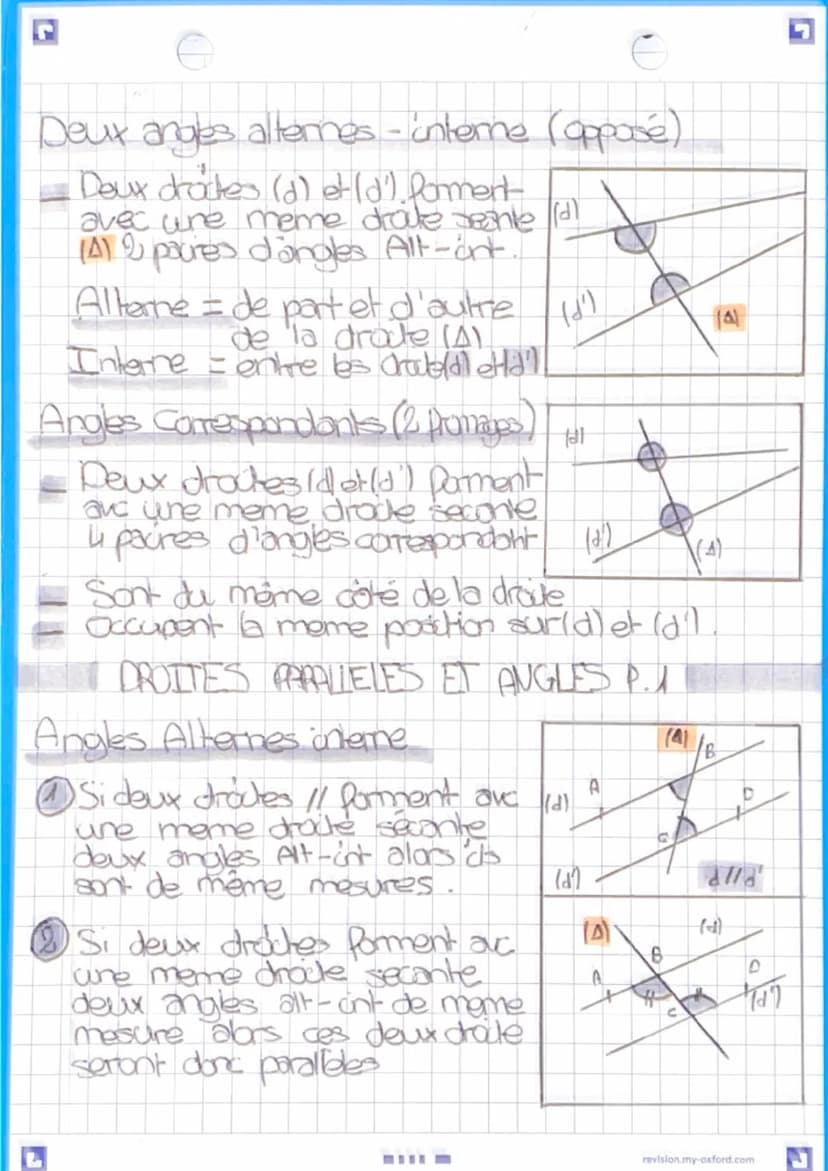 Deux angles alternes - interne (opposé)
Deux droites (d) et (d') forment
avec une meme droite seante
(Δ) 2 paires d'angles Alt-int.
Alterne = de part et d'autre
de la droite (Δ)
Interne = entre les droite(d) et(d')
(d)
(d')
(Δ)
Angles Correspondants (2 fromages)
Deux droites (d) et (d') forment
avc une meme droite seconte
4 paires d'angles correspondant
(d)
(d')
(Δ)
Sont du même côté de la droite
Occupent la meme position sur (d) et (d').
DROITES PARALLELES ET ANGLES P.1
Angles Alternes interne
1 Si deux droites // forment avc
une meme droite sécante
deux angles Alt-int alors ils
sont de même mesures.
(Δ)
B
A
(d)
D
C
(d')
d // d'
2 Si deux droites forment avc
une meme droite secante
deux angles alt-int de meme
mesure alors ces deux droite
seront donc parallèles
(Δ)
(d)
B
A
D
C
(d')
revision.my-oxford.com